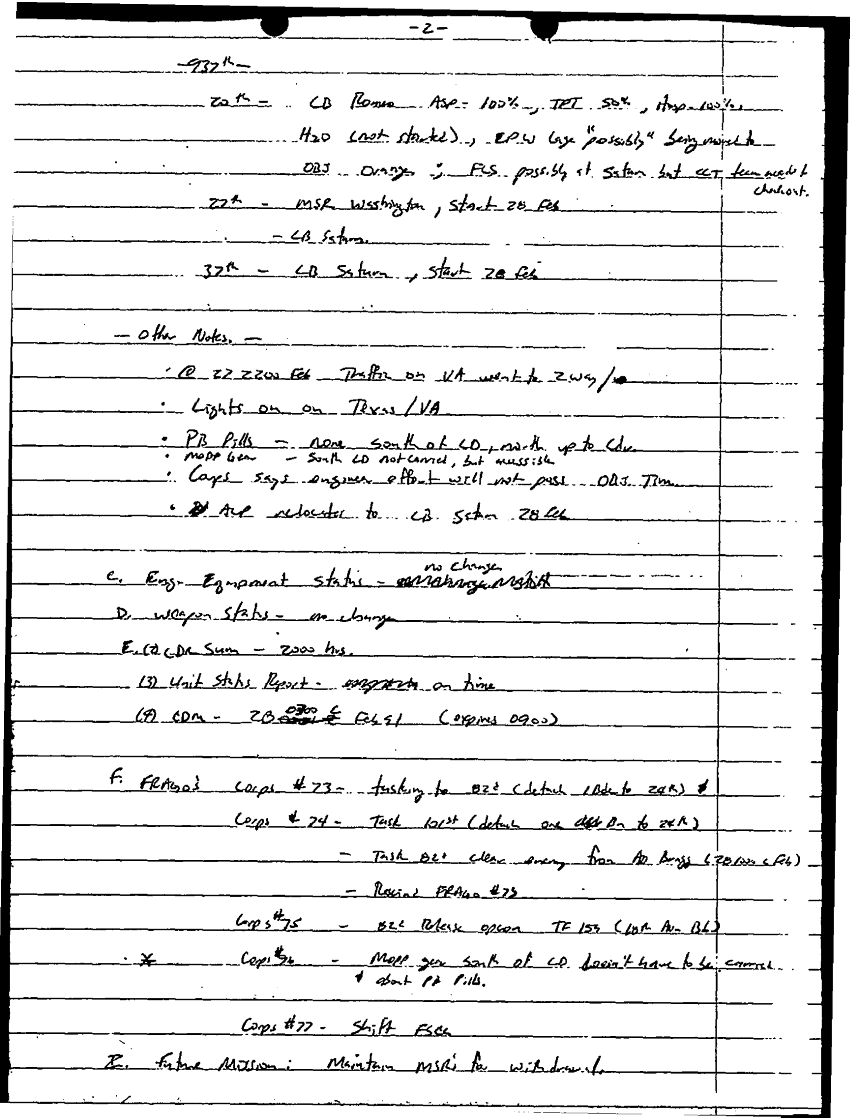 -2-
-937th-
20th - LB Romeo ASP - 100%, TPT 50%, Hosp - 100%,
H2O (not started), EPW Cage "possibly" being moved to
OBJ Orange ; FLS possibly at Saturn but CCT team needs to
checkout.
27th - MSR Washington, Start 28 Feb
- LB Saturn.
37th - LB Saturn, Start 28 Feb
- Other Notes. -
· @ 22 2200 Feb Traffic on VA went to 2 way/
· Lights on on Texas/VA
· PB Pills - none south of LD, north up to Cdr.
· MOPP Gear - South LD not carried, but accessible
· Corps says engineer effort will not pass OBJ Tim
· ALP relocates to LB Saturn 28 Feb
no change
C. Eng. Equipment Status -
D. Weapon Status - no change
E. (2) CDR Sum - 2000 hrs.
(3) Unit Status Report - on time
(4) CDM - 28 0300 C Feb 91 (expires 0900)
F. FRAGO's Corps #73 - tasking to 82d (detach 1Bde to 24th)
Corps #74 - Task 101st (detach one Bn to 24th)
- Task 82d clear enemy from AO Bragg (28 C Feb)
- Rescind FRAGO #73
Corps #75 - 82d Release opcon TF 159 (18th Avn Bde)
* Corps #76 - MOPP gear south of LD doesn't have to be carried
about PB Pills.
Corps #77 - Shift FSCL
Future Mission: Maintain MSR's for withdrawal.